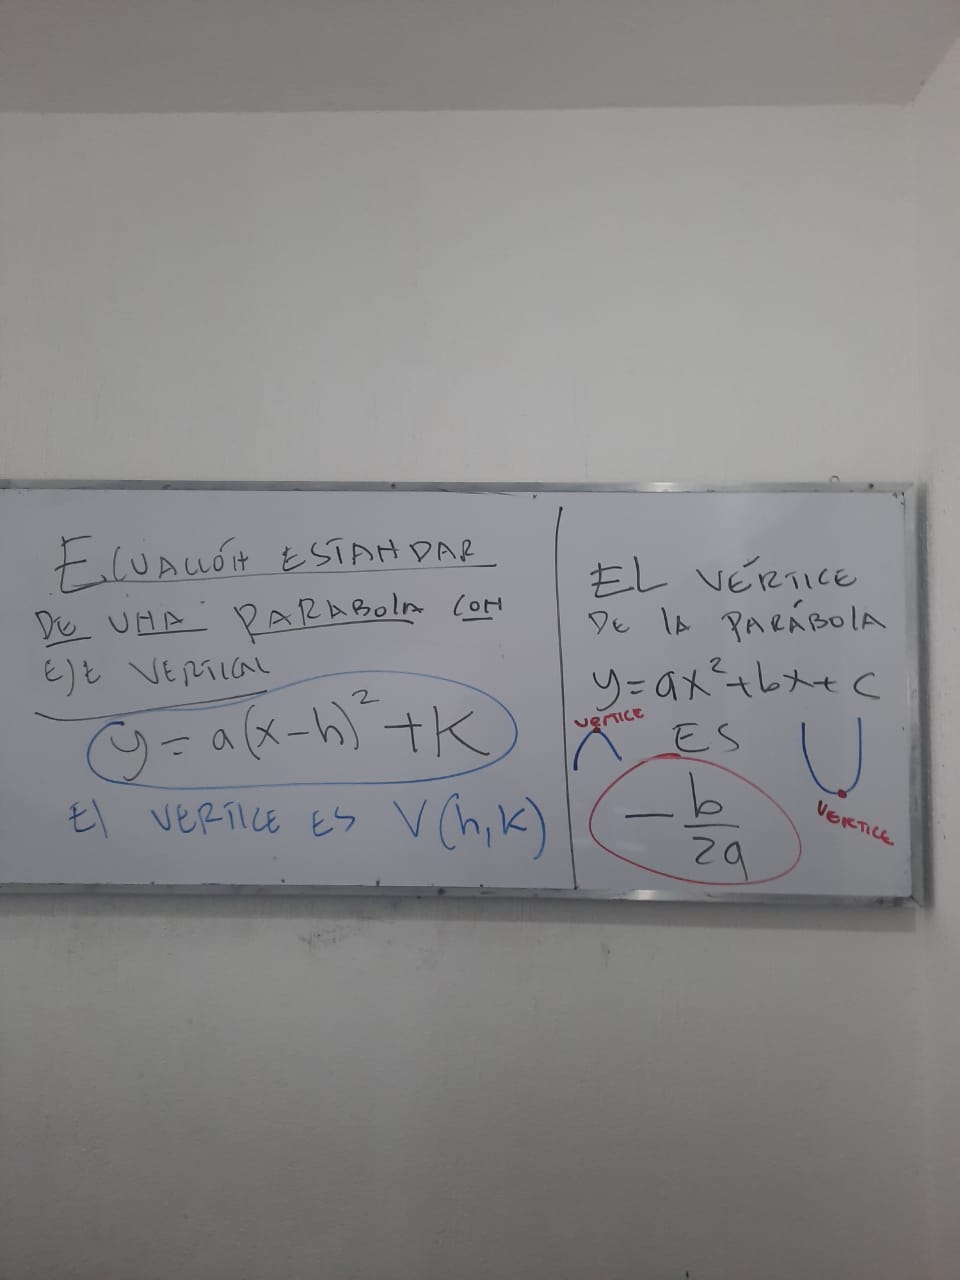 ECUACIÓN ESTANDAR
DE UNA PARABOLA CON
EJE VERTICAL
y = a(x-h)² + K
El VERTICE ES V(h,K)
EL VÉRTICE
DE LA PARÁBOLA
y=ax²+bx+c
VERTICE
ES
-b/2a
VERTICE